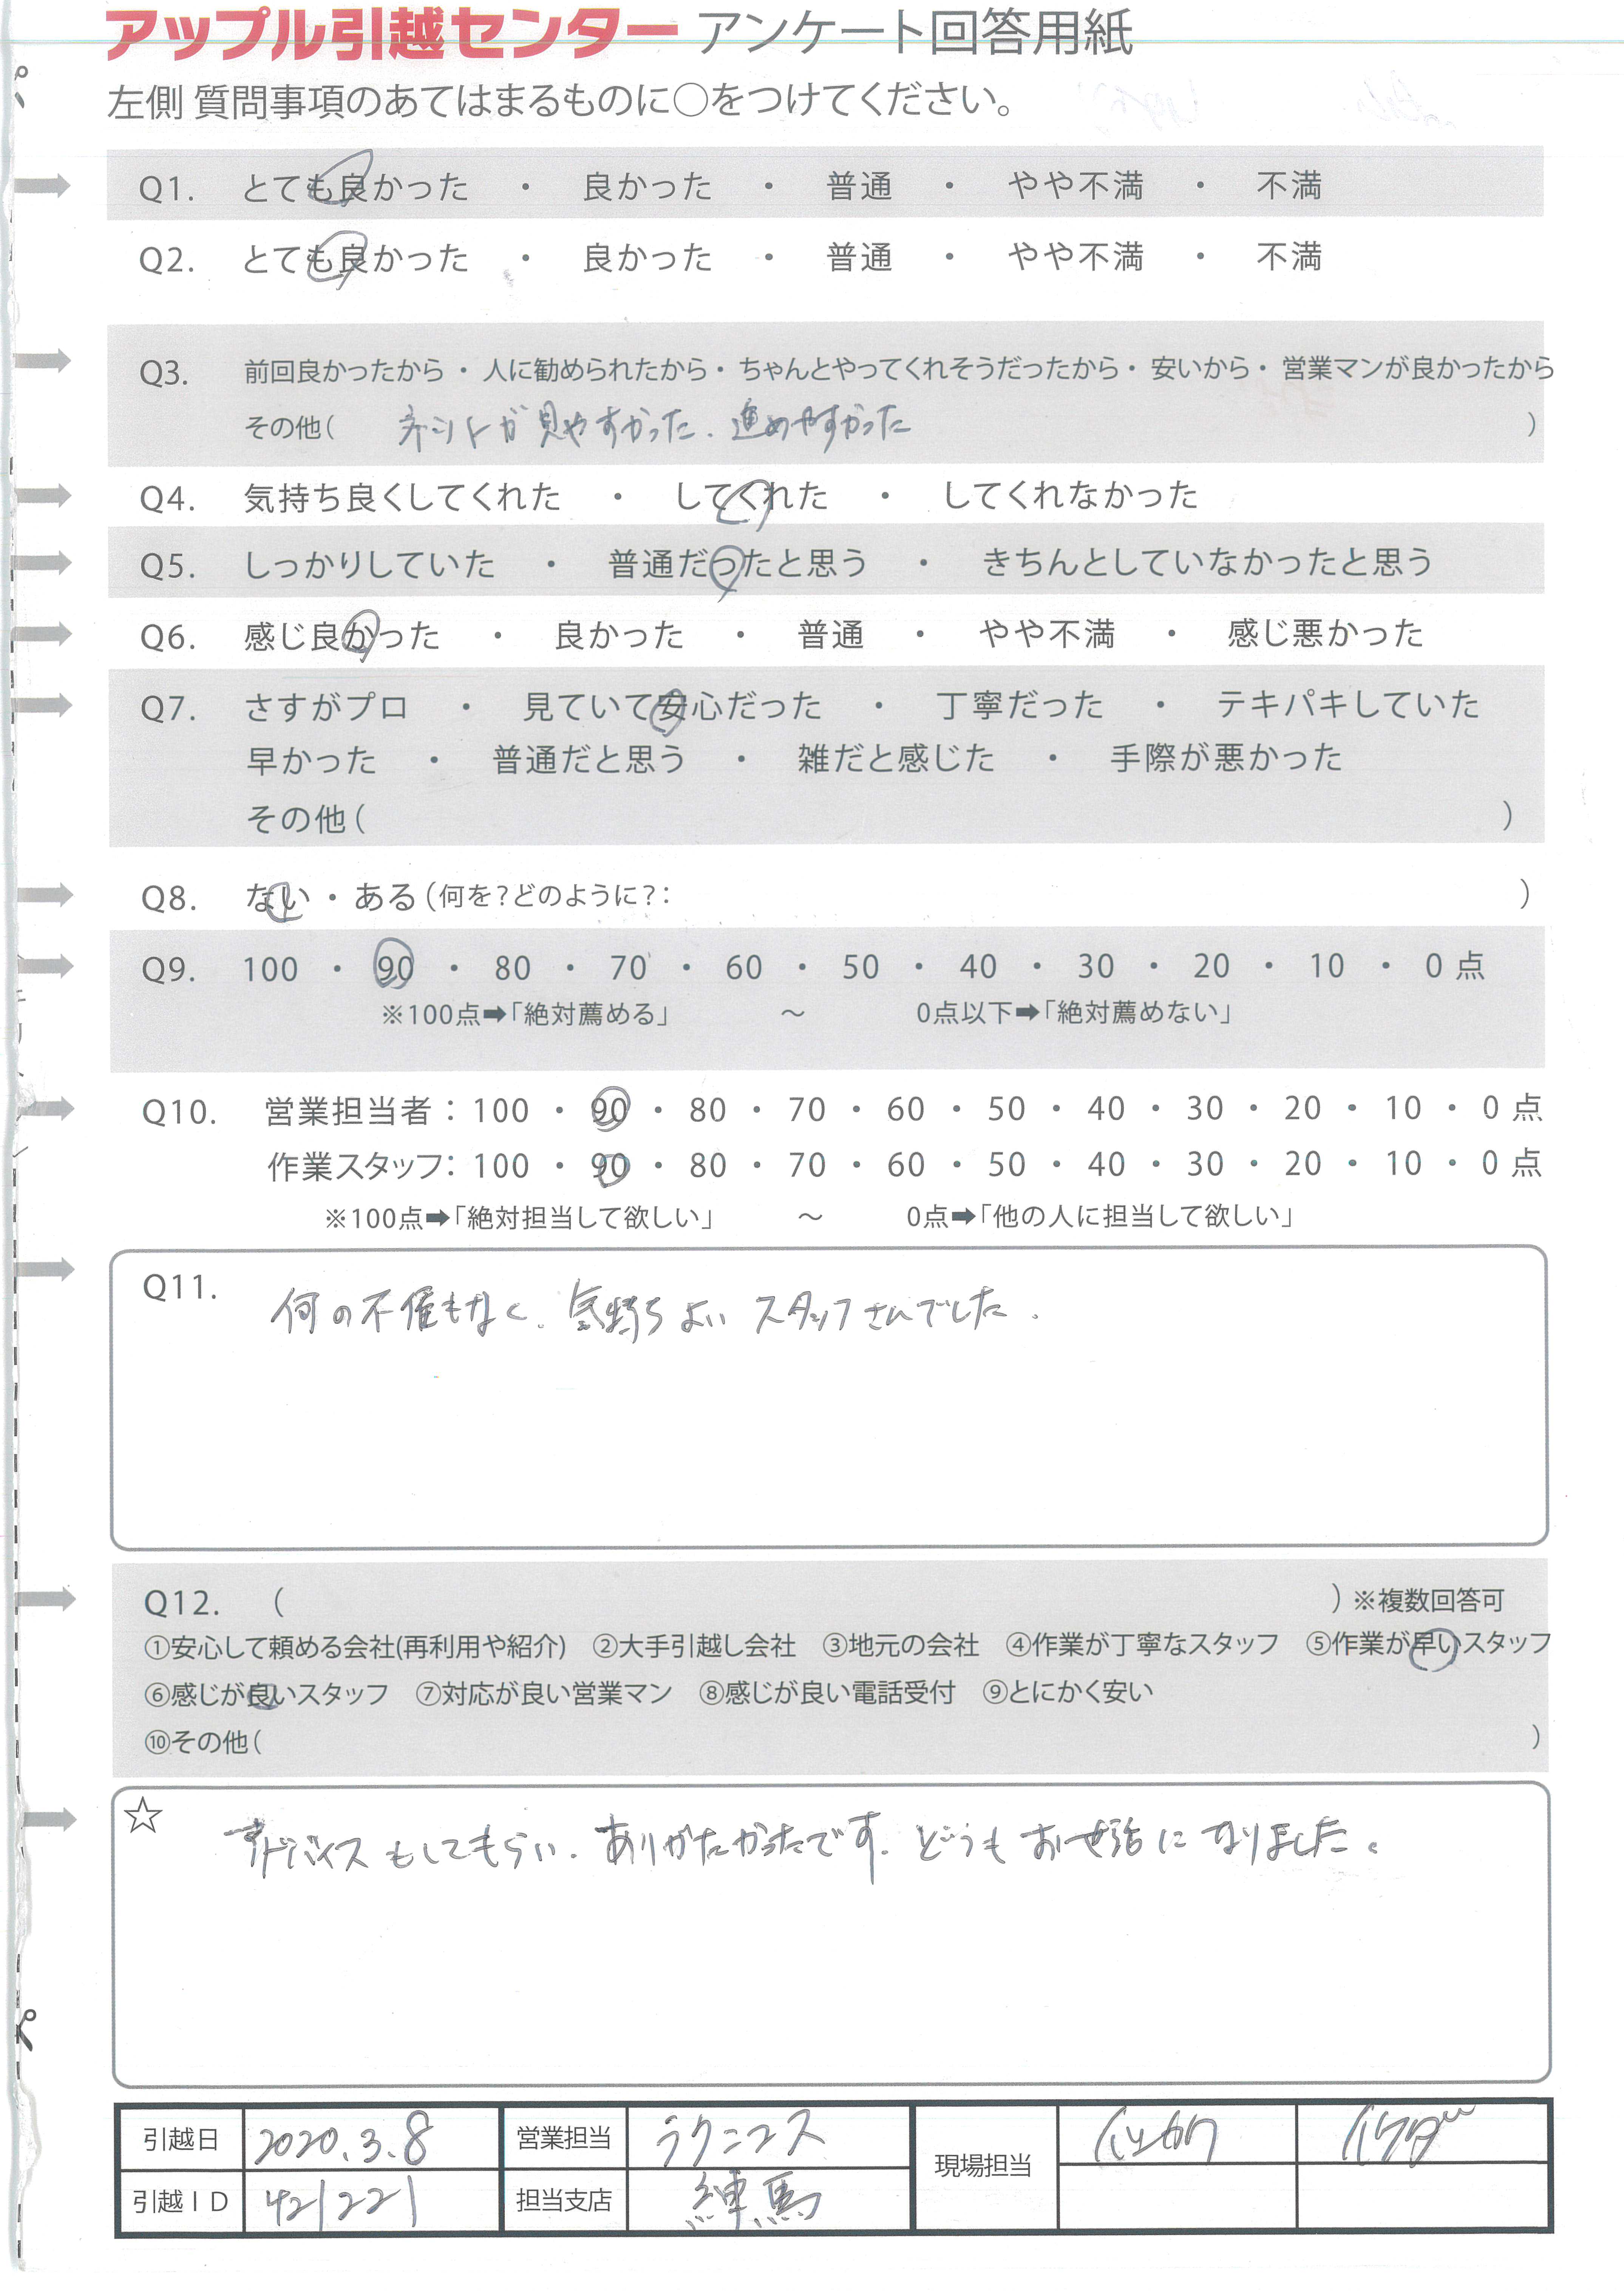 アップル引越センター アンケート回答用紙
左側 質問事項のあてはまるものに○をつけてください。
Q1. とても良かった ・ 良かった ・ 普通 ・ やや不満 ・ 不満
Q2. とても良かった ・ 良かった ・ 普通 ・ やや不満 ・ 不満
Q3. 前回良かったから ・ 人に勧められたから ・ ちゃんとやってくれそうだったから ・ 安いから ・ 営業マンが良かったから
その他( ネットが見やすかった、進めやすかった )
Q4. 気持ち良くしてくれた ・ してくれた ・ してくれなかった
Q5. しっかりしていた ・ 普通だったと思う ・ きちんとしていなかったと思う
Q6. 感じ良かった ・ 良かった ・ 普通 ・ やや不満 ・ 感じ悪かった
Q7. さすがプロ ・ 見ていて安心だった ・ 丁寧だった ・ テキパキしていた
早かった ・ 普通だと思う ・ 雑だと感じた ・ 手際が悪かった
その他( )
Q8. ない ・ ある(何を?どのように?: )
Q9. 100 ・ 90 ・ 80 ・ 70 ・ 60 ・ 50 ・ 40 ・ 30 ・ 20 ・ 10 ・ 0 点
※100点➡「絶対薦める」 〜 0点以下➡「絶対薦めない」
Q10. 営業担当者：100 ・ 90 ・ 80 ・ 70 ・ 60 ・ 50 ・ 40 ・ 30 ・ 20 ・ 10 ・ 0 点
作業スタッフ：100 ・ 90 ・ 80 ・ 70 ・ 60 ・ 50 ・ 40 ・ 30 ・ 20 ・ 10 ・ 0 点
※100点➡「絶対担当して欲しい」 〜 0点➡「他の人に担当して欲しい」
Q11. 何の不備もなく、気持ちよい スタッフさんでした.
Q12. ( ) ※複数回答可
①安心して頼める会社(再利用や紹介) ②大手引越し会社 ③地元の会社 ④作業が丁寧なスタッフ ⑤作業が早いスタッフ
⑥感じが良いスタッフ ⑦対応が良い営業マン ⑧感じが良い電話受付 ⑨とにかく安い
⑩その他( )
☆ アドバイスもしてもらい、ありがたかったです. どうもお世話になりました。
引越日 2020.3.8 営業担当 ラクニコス 現場担当
引越ID 421221 担当支店 練馬